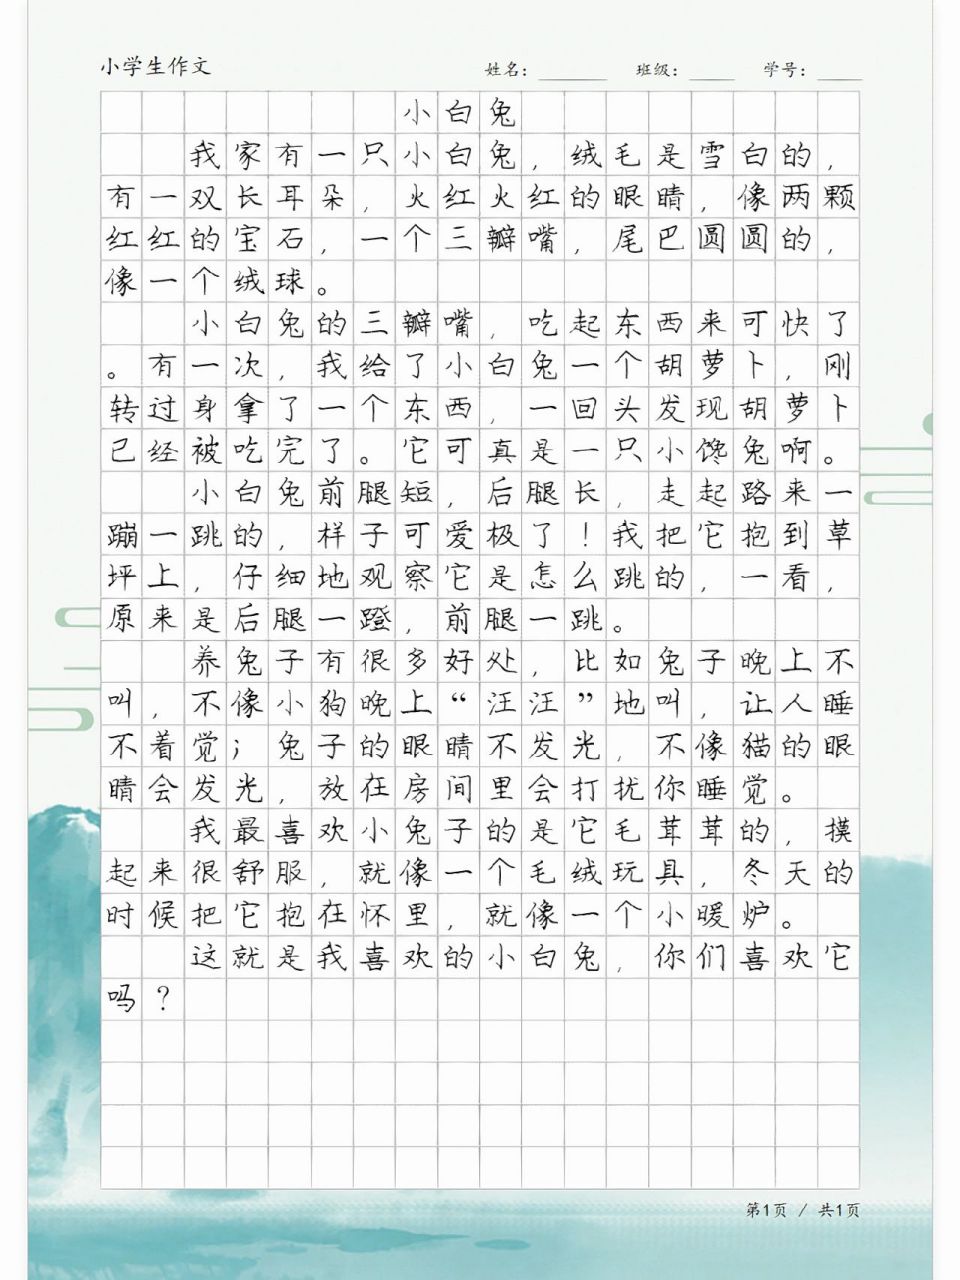 小学生作文 姓名：______ 班级：____ 学号：____
小白兔
我家有一只小白兔，绒毛是雪白的，
有一双长耳朵，火红火红的眼睛，像两颗
红红的宝石，一个三瓣嘴，尾巴圆圆的，
像一个绒球。
小白兔的三瓣嘴，吃起东西来可快了
。有一次，我给了小白兔一个胡萝卜，刚
转过身拿了一个东西，一回头发现胡萝卜
已经被吃完了。它可真是一只小馋兔啊。
小白兔前腿短，后腿长，走起路来一
蹦一跳的，样子可爱极了！我把它抱到草
坪上，仔细地观察它是怎么跳的，一看，
原来是后腿一蹬，前腿一跳。
养兔子有很多好处，比如兔子晚上不
叫，不像小狗晚上“汪汪”地叫，让人睡
不着觉；兔子的眼睛不发光，不像猫的眼
睛会发光，放在房间里会打扰你睡觉。
我最喜欢小兔子的是它毛茸茸的，摸
起来很舒服，就像一个毛绒玩具，冬天的
时候把它抱在怀里，就像一个小暖炉。
这就是我喜欢的小白兔，你们喜欢它
吗？
第1页 / 共1页